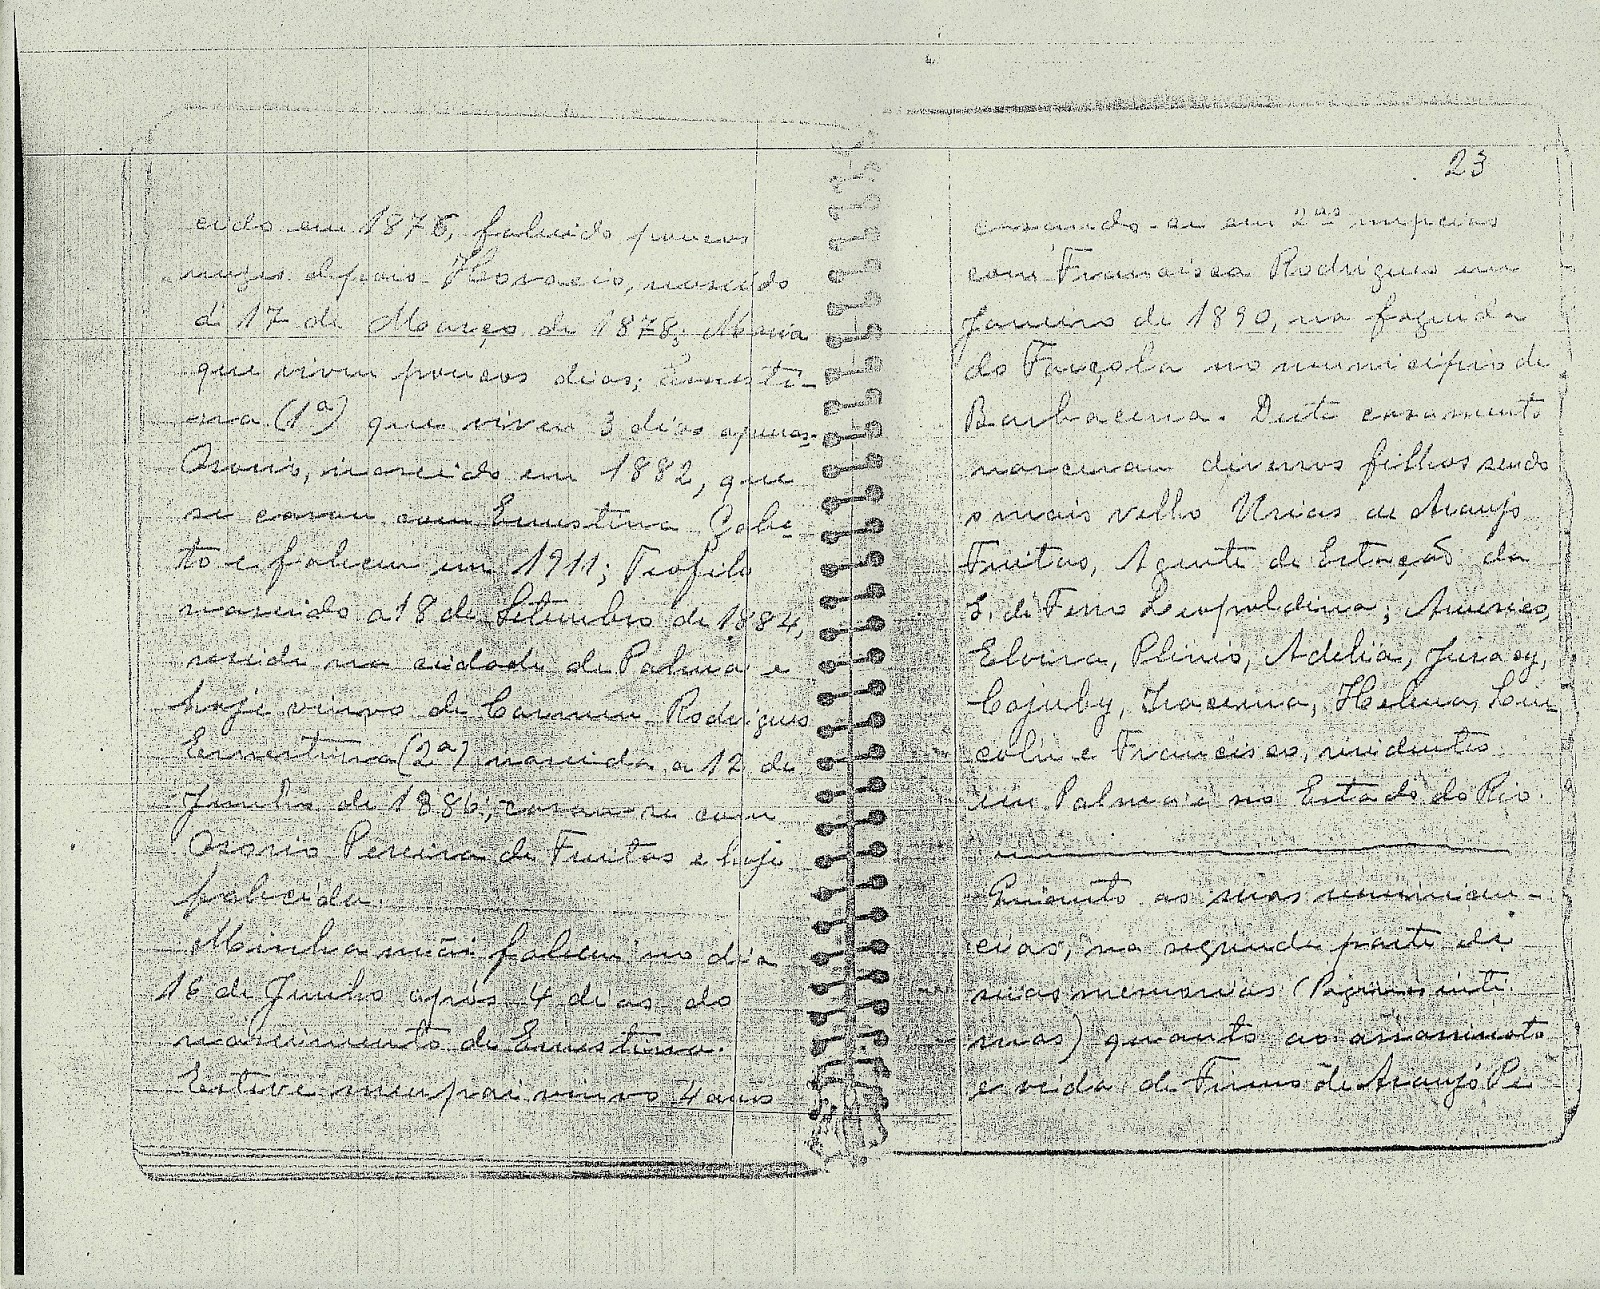 cido em 1876, falecido poucos
mezes depois Horacio, nascido
á 17 de Março de 1878; Maria
que viveu poucos dias; Ernesti-
na (1ª) que viveu 3 dias apenas.
Osorio, nascido em 1882, que
se casou com Ernestina
to e faleceu em 1911; Teofilo
nascido a 18 de Setembro de 1884,
reside na cidade de Palma e
hoje viuvo de Carmen Rodrigues
Ernestina (2ª) nascida a 12 de
Junho de 1886; casou-se com
Osorio Pereira de Freitas e hoje
falecida.
Minha mãi faleceu no dia
16 de Junho após 4 dias do
nascimento de Ernestina.
Esteve meu pai viuvo 4 anos
23
casando-se em 2as nupcias
com Francisca Rodrigues em
Janeiro de 1890, na fazenda
do no municipio de
Barbacena. Deste casamento
nasceram diversos filhos sendo
o mais velho Urias de Araujo
Freitas, Agente de Estação da
E. de Ferro Leopoldina; Americo,
Elvira, Plinio, Adelia, Juracy,
Cajuby, Iracema, Helena, Lin
coln e Francisco, residentes
em Palma e no Estado do Rio.
Quanto as suas reminicen-
cias, na segunda parte de
suas memorias (Paginas inti
mas) quanto ao assassinato
e vida de Firmo de Araujo Pe